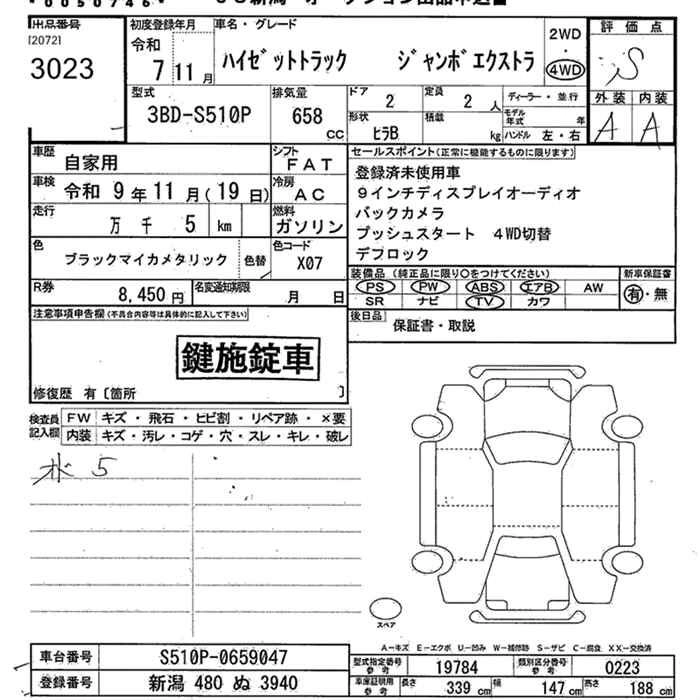 *0050746*
出品番号
[20721
3023
初度登録年月
令和
7 11 月
車名・グレード
ハイゼットトラック ジャンボエクストラ
2WD
・
4WD
評価点
S
外装 内装
A A
型式
3BD-S510P
排気量
658
CC
ドア
2
定員
2 人
ディーラー・並行
形状
ヒラB
積載
kg
モデル年式
年
ハンドル 左・右
車歴
自家用
シフト
FAT
車検
令和 9 年 11 月(19 日)
冷房
AC
走行
万 千 5 km
燃料
ガソリン
色
ブラックマイカメタリック
色替
色コード
X07
R券
8,450 円
名変通知期限
月 日
セールスポイント(正常に機能するものに限ります)
登録済未使用車
9インチディスプレイオーディオ
バックカメラ
プッシュスタート 4WD切替
デフロック
装備品(純正品に限り○をつけてください)
PS PW ABS エアB AW
SR ナビ TV カワ
新車保証書
有・無
後日品
保証書・取説
注意事項申告欄(不具合内容等は具体的に記入して下さい)
鍵施錠車
修復歴 有〔箇所 〕
検査員
記入欄
FW キズ・飛石・ヒビ割・リペア跡・×要
内装 キズ・汚レ・コゲ・穴・スレ・キレ・破レ
水 5
スペア
A-キズ E-エクボ U-凹み W-補修跡 S-サビ C-腐食 XX-交換済
車台番号
S510P-0659047
登録番号
新潟 480 ぬ 3940
型式指定番号
参考
19784
類別区分番号
参考
0223
車庫証明用
参考
長さ
339 cm
幅
147 cm
高さ
188 cm